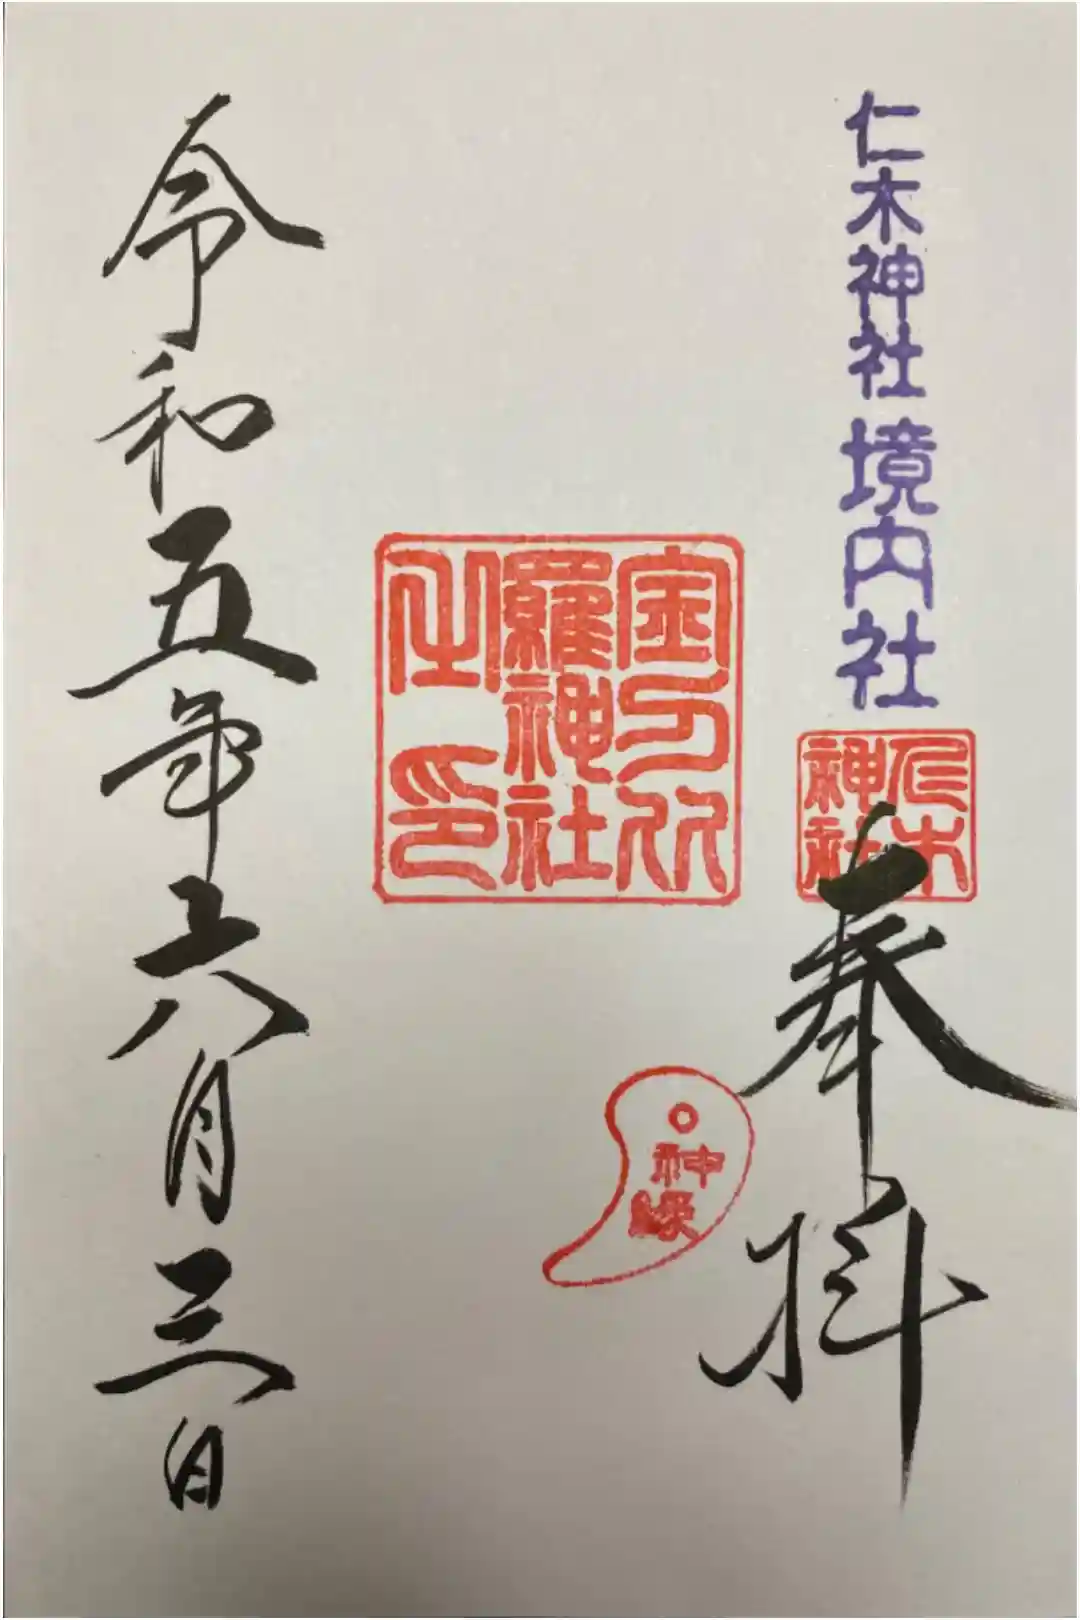 仁木神社境内社
仁木
神社
奉拝
神縁
金刀比
羅神社
之印
令和五年六月三日